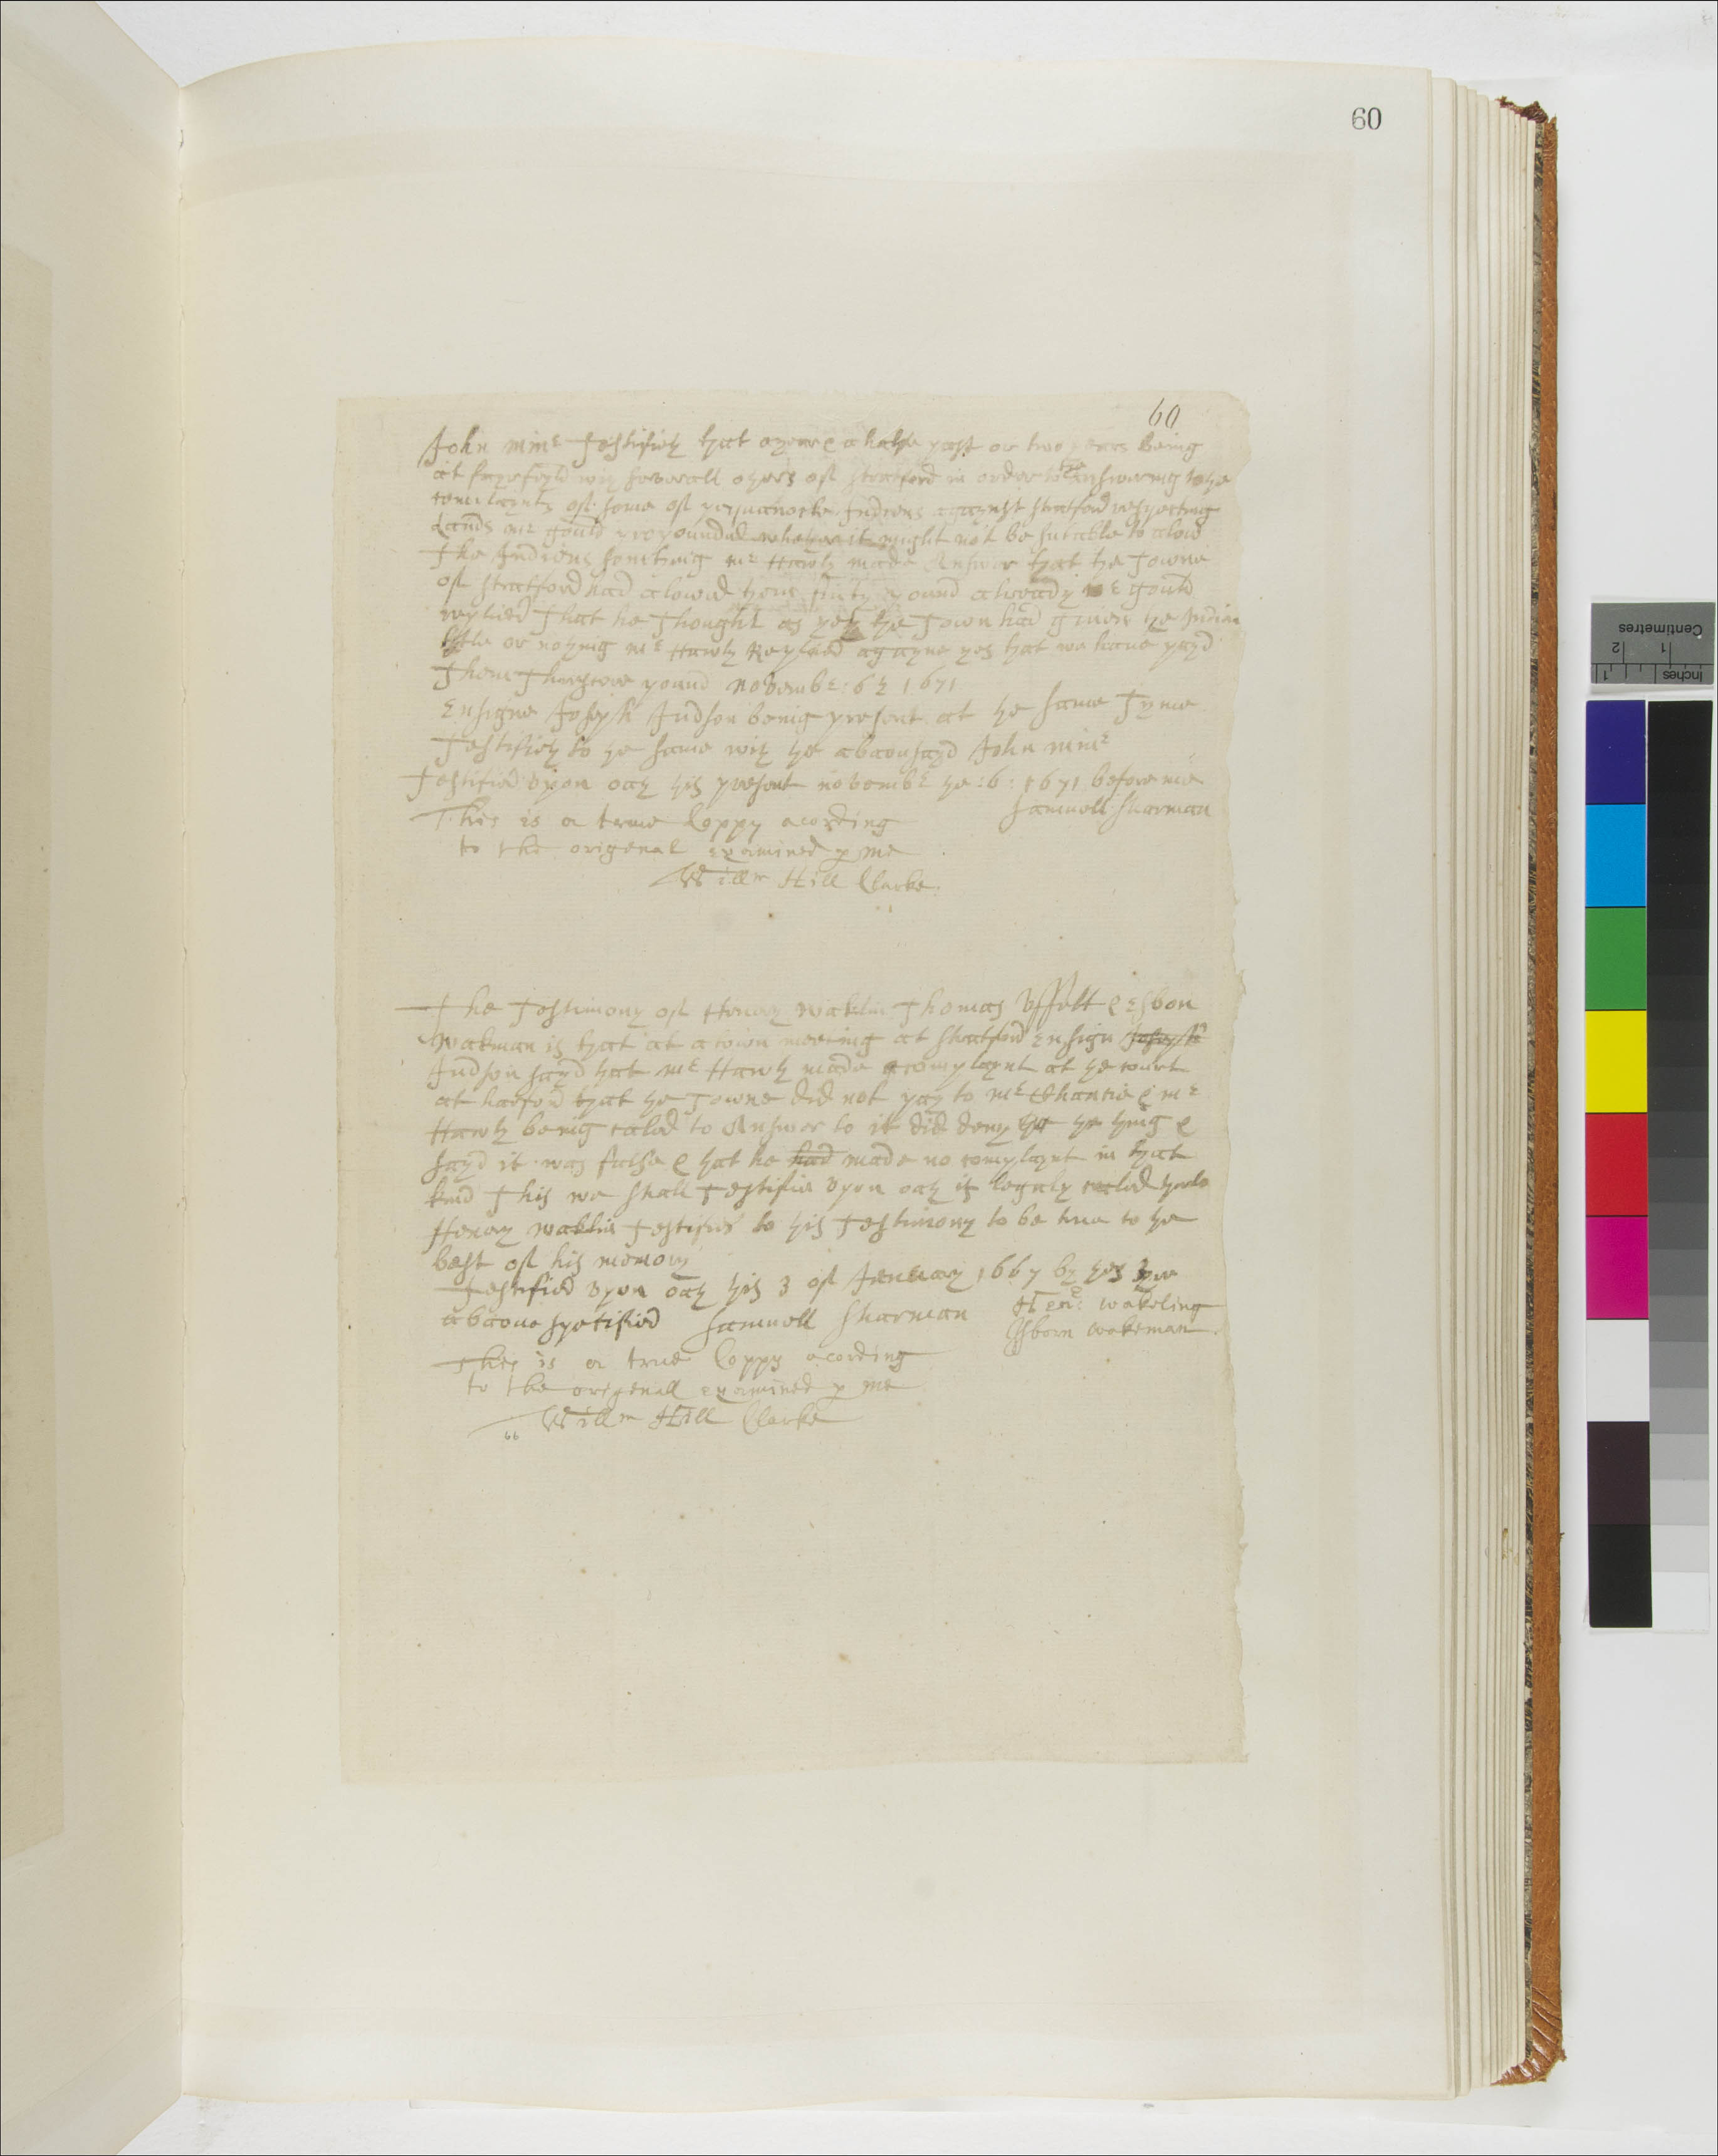 60
60
John minr Testifieth that ayeare & a halfe past or two years Being
at fayrfeyld with severall others off stratford in order to the Answering to the
complaynts off some off pequanocke Indians agaynst stratford respecting
Lands mr gould propounded whether it might not be sutable to alow
The Indians somthing mr Hawly made Answer that the Towne
off stratford had alowed them forty pound already mr gould
replied That he Thought as yet the Town had given the Indian
little or nothing mr Hawly Replied agayne yes that we have payd
Them Therscore pound novembr: 6th 1671
Ensigne Joseph Judson being present at the same Tyme
Testifieth to the same with the abovesayd John minr
Testified upon oath this present novembr the: 6: 1671 before me
Samuell Sharman
This is a true Coppy acording
to the origenal examined p me
Willm Hill Clarke
The Testimony off Henery Waklin Thomas Uffutt & Esbon
Wakman is that at a town meeting at stratford Ensign Joseph
Judson sayd that mr Hawly made a complaynt at the court
at harford that the Towne did not pay to mr Chancie & mr
Hawly being caled to Answer to it did deny the thing &
sayd it was false & that he had made no complaynt in that
kind This we shall Testifie upon oath if legaly caled therto
Henery waklin Testifies to this Testimony to be true to the
best off his memory
Testified upon oath this 3 off Jenuary 1667 by thes
aboove spetified Samuell Sharman
Henr: wakeling
Esborn wakeman
This is a true Coppy acording
to the origenall examined p me
Willm Hill Clarke
66
Centimetres
1 2
Inches
1